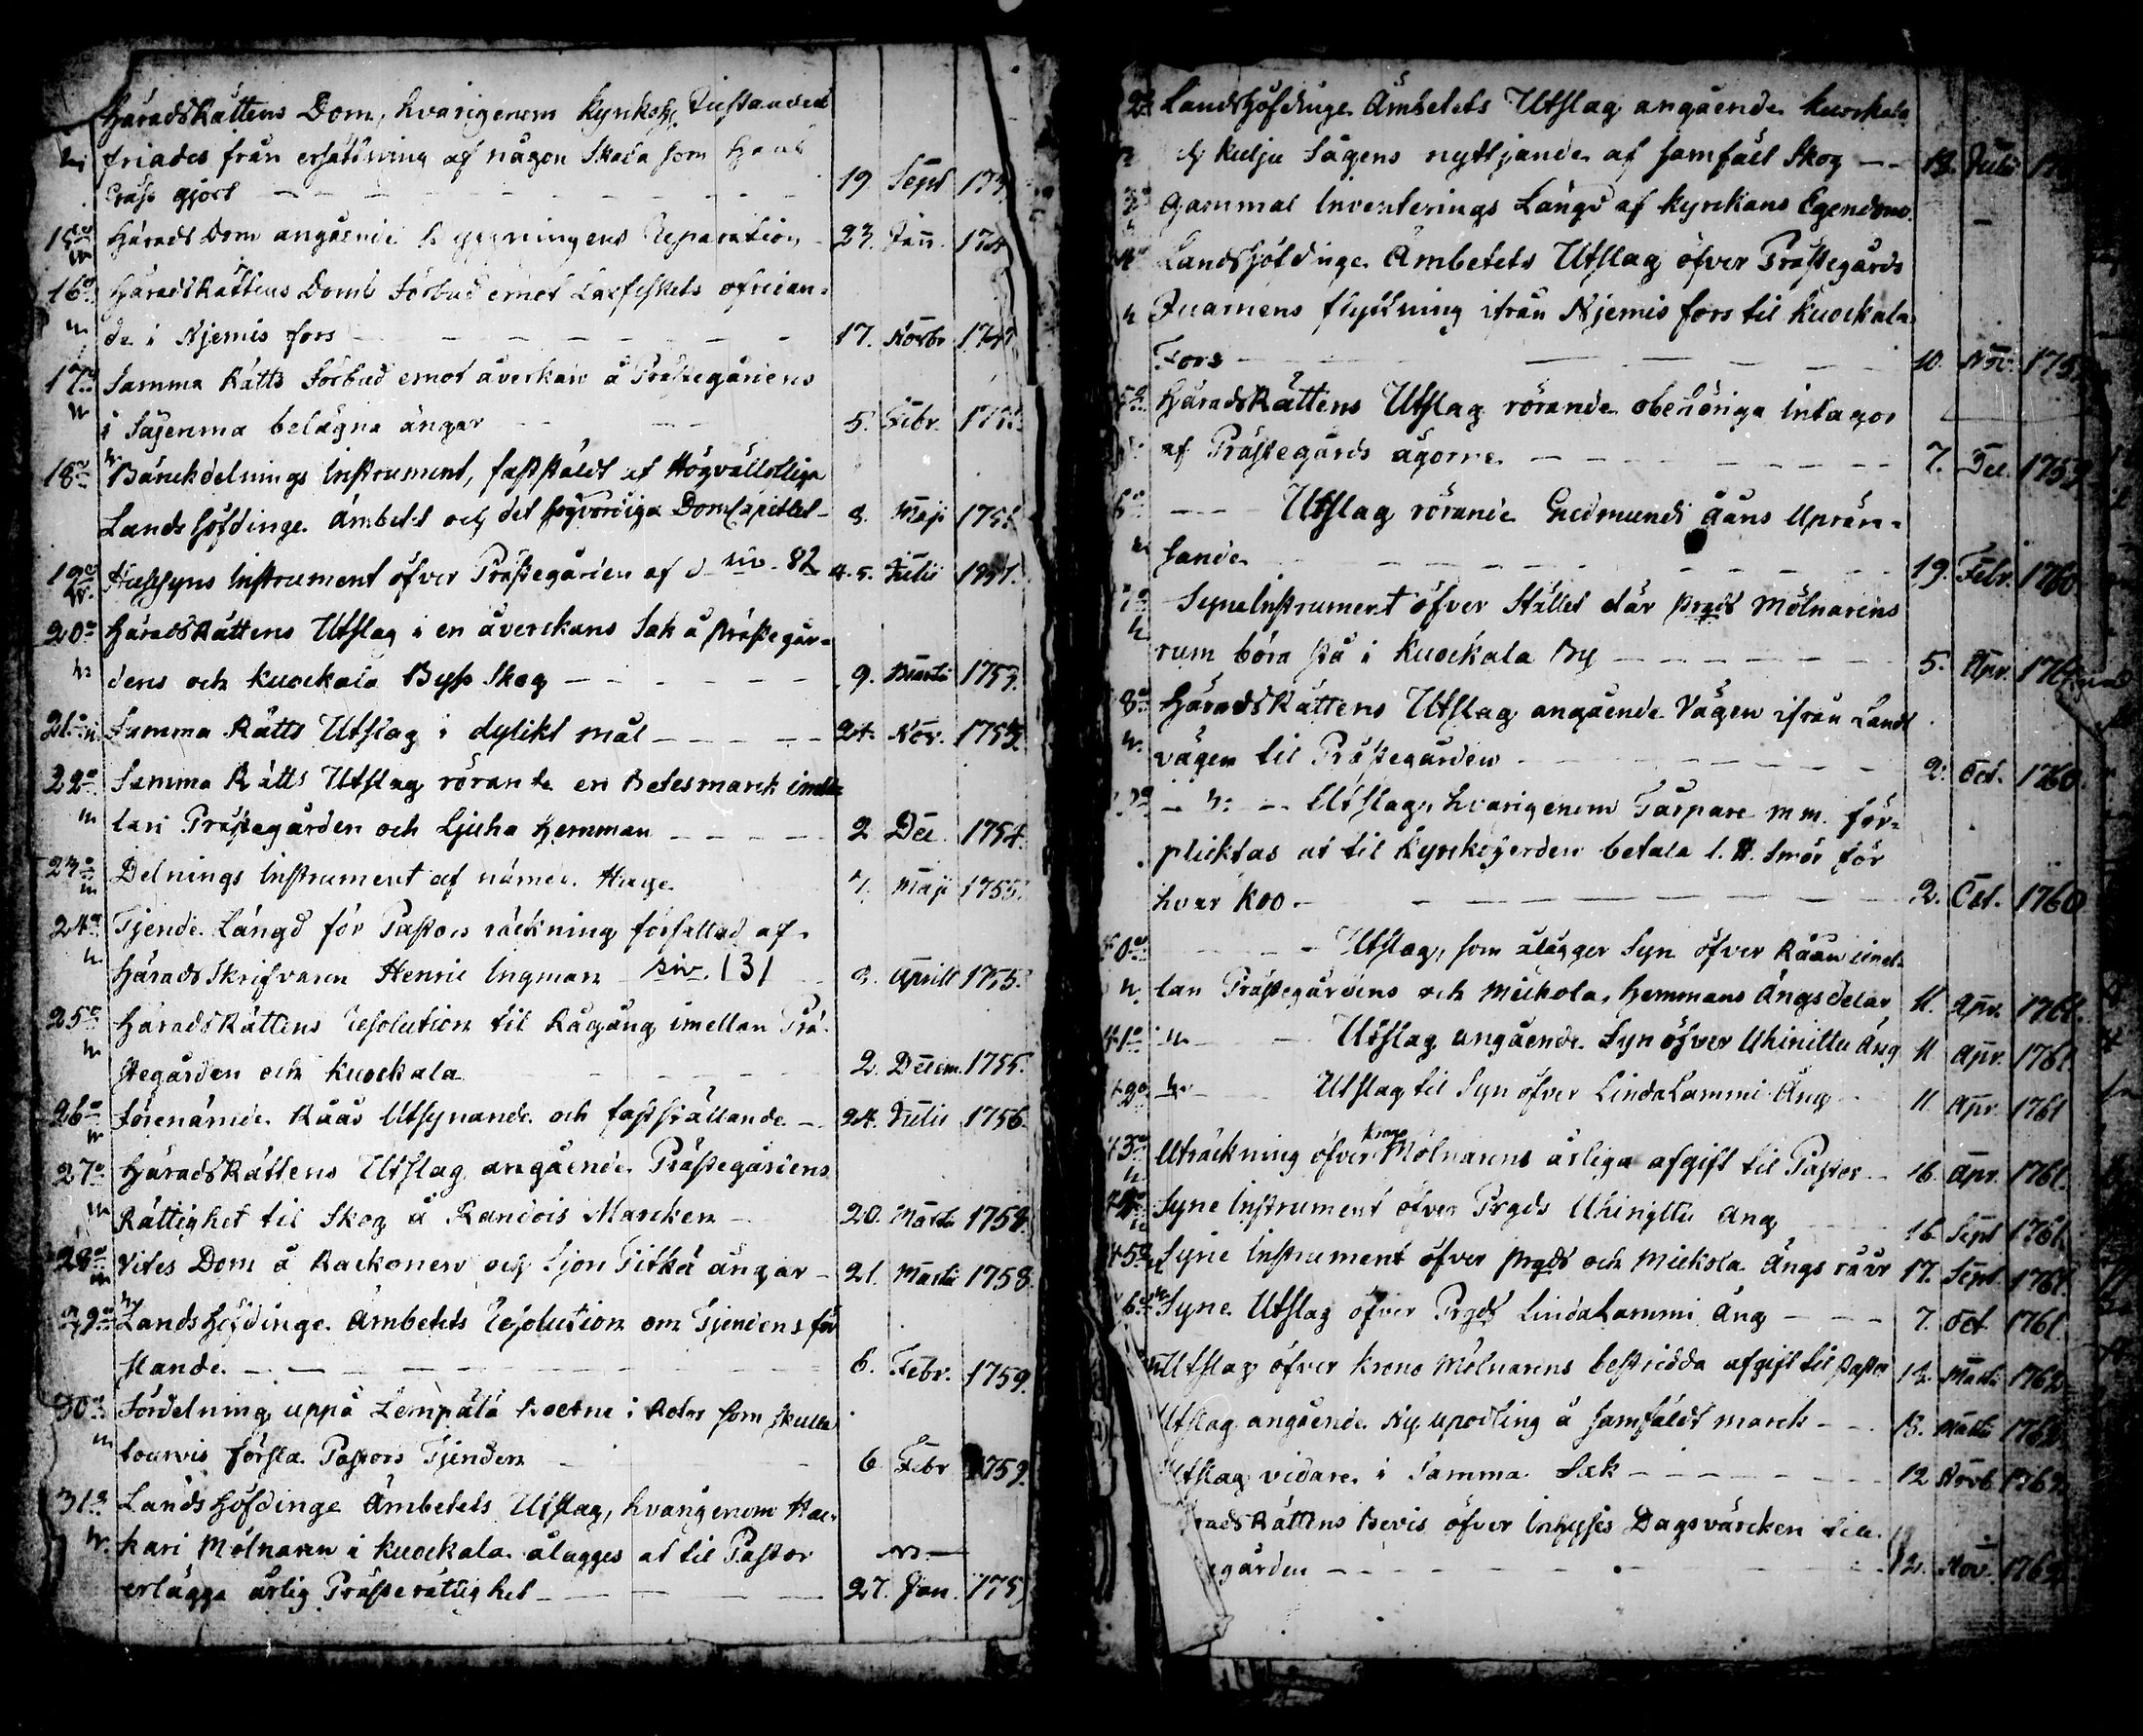 HäradsRättens Dom, hvarigenom kyrkoh.
friades från ersättning af någon Skada som
gjort 19. Sept 17
15 Härads Dom angående Byggningens Reparation 23. Jan. 17
16 HäradsRättens Doms Förbud emot Laxfiskets ofrian-
de i Njemis fors 17. Novbr 17
17 Samma Rätts Förbud emot åverkan å Prästegårdens
i Sajenma belägna ängar 5. Febr. 17
18 Bänckdelnings Instrument, fastställdt af Högvällofliga
Landshöfdinge Ämbetet och det högvördiga DomCapitlet 8. Maji 175
19 HusSyns Instrument öfver Prästegården af d. siv. 82 4.5. Julii 1751.
20 HäradsRättens Utslag i en åverckans Sak å Prästegår-
dens och Kuockala Byss Skog 9. Martii 1753.
21 Samma Rätts Utslag i dylikt mål 24. Nov. 1753.
22 Samma Rätts Utslag rörande en Betesmarck imel-
lan Prästegården och Ljuha Hemman 2 Dec. 1754.
23 Delnings Instrument af nämde Hage 7. Maji 1755.
24 Tjende Längd för Pastors räckning författad af
HäradsSkrifvaren Henric Ingman siv. 131 3. Aprill 1755.
25 HäradsRättens Resolution til Rågång imellan Prä-
stegården och Kuockala 2. Decem. 1755.
26 Förenämde Råås Utsynande och fastställande 24. Julii 1756.
27 HäradsRättens Utslag angående Prästegårdens
Rättighet til Skog å Randois Marcken 20. Martii 1758.
28 Vites Dom å Rackonen och Sjon Titkä ängar 21. Martii 1758.
29 Landshöfdinge Ämbetets Resolution om Tjendens för
slande 6. Febr. 1759.
30 Fördelning uppå Lempälä Boerne i Rotar som skulla
tourvis försla Pastors Tjenden 6 Febr 1759.
31 Landshöfdinge Ämbetets Utslag, hvarigenom Hac-
kari Mölnaren i Kuockala ålägges at til Pastor
erlägga årlig Prästerättighet 27. Jan. 1759
Landshöfdinge Ämbetets Utslag angående Kuockala
och Kulju Sågens nyttjande af samfält Skog 13. Julii 17
Gammal Inventerings Längd af kyrckans Egendom.
Landshöfdinge Ämbetets Utslag öfver Prästegårds
Quarnens flyttning ifrån Njemis fors til Kuockala
Fors 10. Nov. 175
HäradsRättens Utslag rörande obehöriga Intagor
af Prästegårds ägorne 7. Dec. 1759
Utslag rörande Gudmundi Åäns Uprän-
sande 19. Febr. 1760
7 SyneInstrument öfver Stället där Prgds Mölnarens
rum böra stå i Kuockala By 5. Apr. 176
8 HäradsRättens Utslag angående Vägen ifrån Lands
vägen til Prästegården 2. Oct. 1760.
Utslag, hvarigenom Tarpare m.m. för-
plicktas at til Kyrkoherden betala 1. ℔. Smör för
hvar Koo 2. Oct. 1760
40 Utslag, som ålägger Syn öfver Råån imel-
lan Prästegårdens och Mickola Hemmans Ängsdelar 11. Apr. 1761.
41 Utslag angående Syn öfver Uhinittu Äng 11 Apr. 1761.
42 Utslag til Syn öfver LindaLammi Äng 11 Apr. 1761
43 Uträckning öfver Krono Mölnarens årliga afgift til Pastor 16. Apr. 1761.
44 Syne Instrument öfver Prgds Uhinittu Äng 16 Sept 1761.
45 Syne Instrument öfver Prgds och Mickola Ängs råår 17. Sept. 1761.
6 Syne Utslag öfver Prgds LindaLammi Äng 7. Oct 1761.
Utslag öfver Krono Mölnarens bestridda afgift til Pastor 13. Martii 1762
Utslag angående Ny upodling å samfäldt marck 13. Martii 1762.
Utslag vidare i Samma Sak 12 Novb 1762.
radsRättens Bevis öfver Inhyses Dagsvärcken
gården 12. Nov. 1762